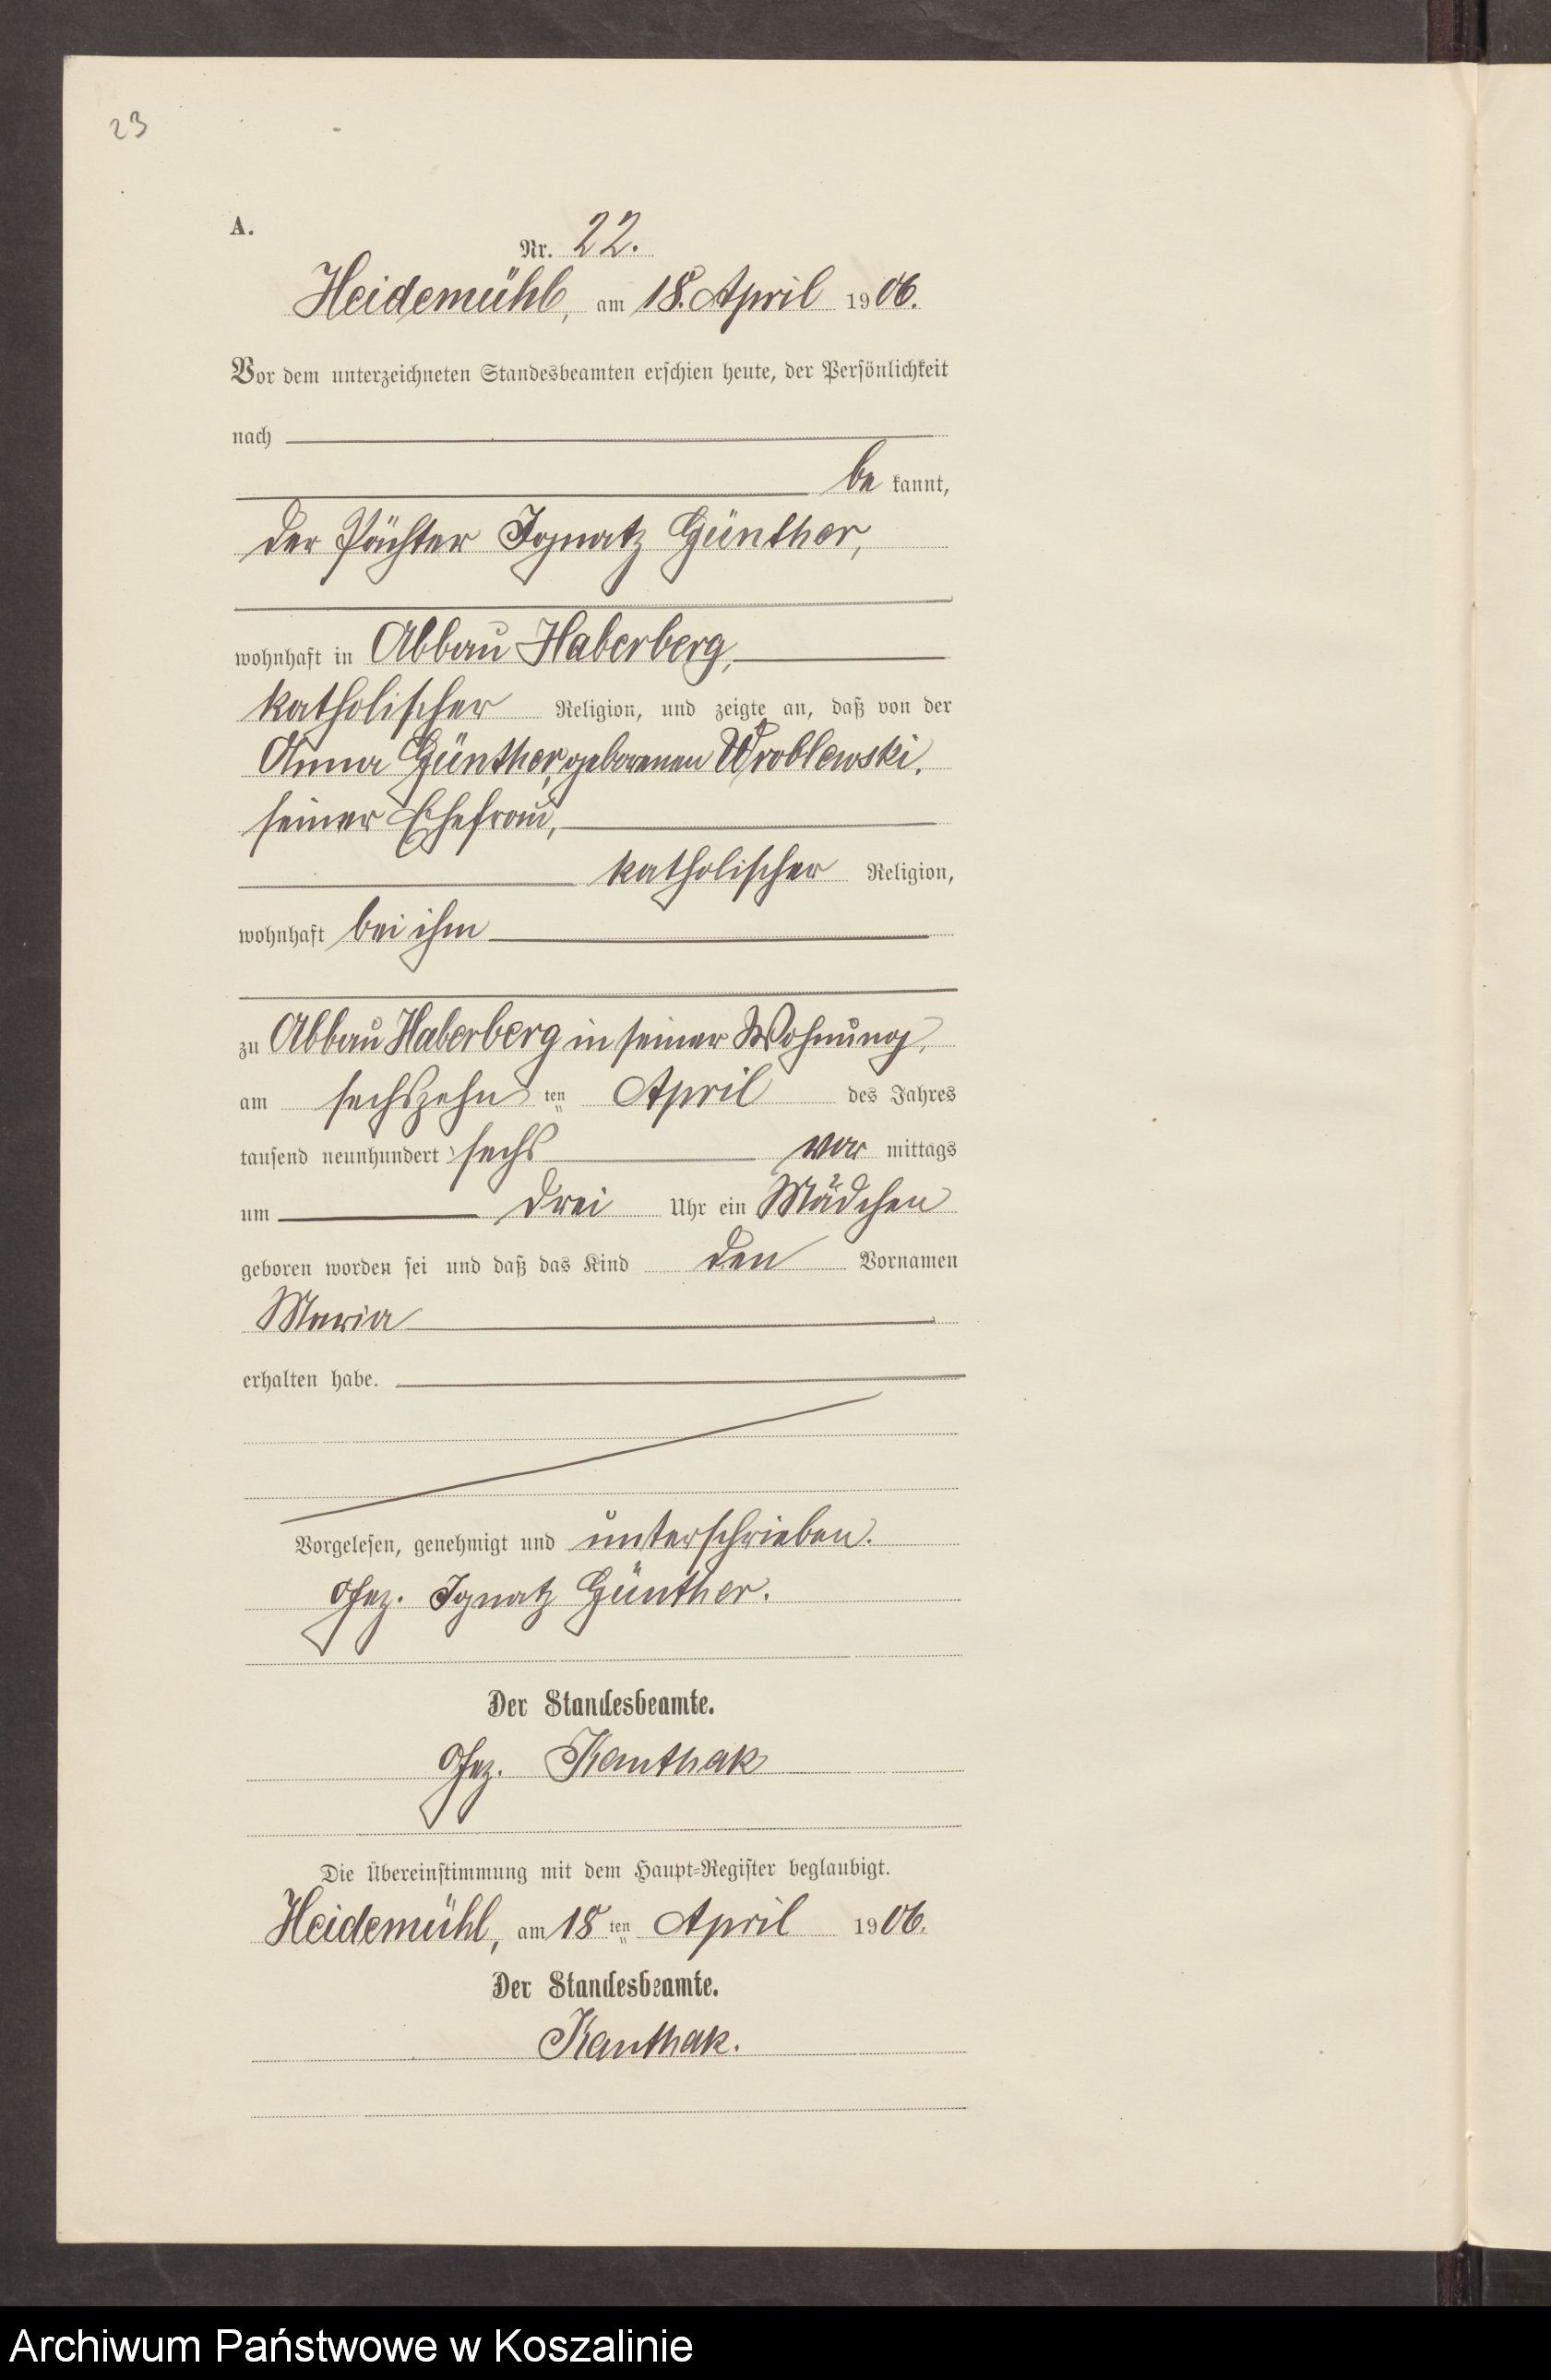 23
A.
Nr. 22.
Heidemühl, am 18. April 1906.
Vor dem unterzeichneten Standesbeamten erschien heute, der Persönlichkeit
nach
be kannt,
der Pächter Ignatz Günther,
wohnhaft in Abbau Haberberg,
katholischer Religion, und zeigte an, daß von der
Anna Günther, geborenen Wroblewski,
seiner Ehefrau,
katholischer Religion,
wohnhaft bei ihm
zu Abbau Haberberg in seiner Wohnung,
am sechszehn ten April des Jahres
tausend neunhundert sechs vor mittags
um drei Uhr ein Mädchen
geboren worden sei und daß das Kind den Vornamen
Maria
erhalten habe.
Vorgelesen, genehmigt und unterschrieben.
Gez. Ignatz Günther.
Der Standesbeamte.
Gez. Kanthak
Die Übereinstimmung mit dem Haupt-Register beglaubigt.
Heidemühl, am 18 ten April 1906.
Der Standesbeamte.
Kanthak.
Archiwum Państwowe w Koszalinie